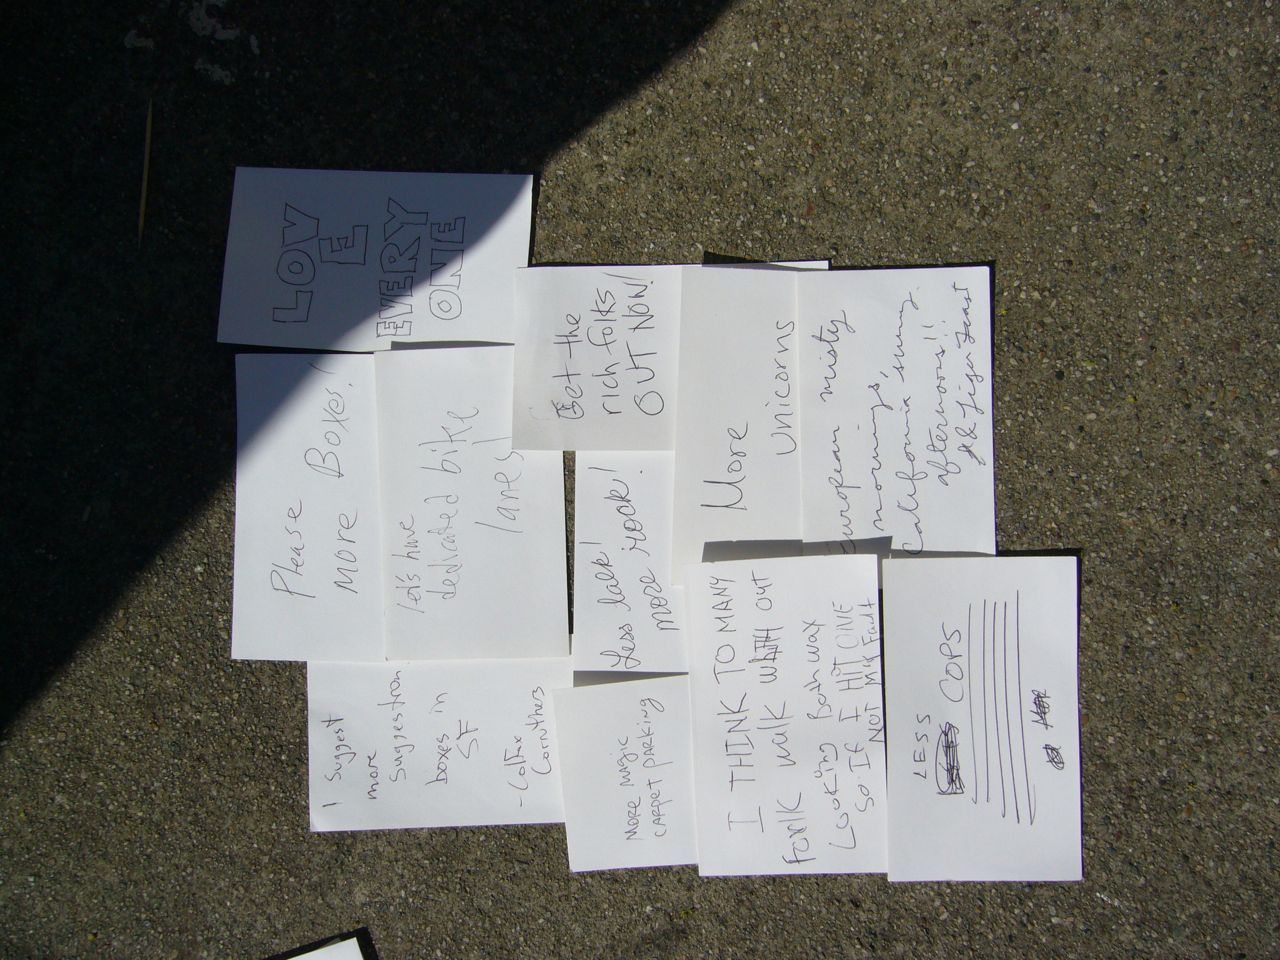 LOV
E
EVERY
ONE
Please
More Boxes!
let's have
dedicated bike
lanes
I suggest
more
suggestion
boxes in
SF
Get the
rich folks
OUT NOW!
Less talk!
more rock!
MORE MAGIC
CARPET PARKING
More
unicorns
European misty
mornings,
California sunny
afternoons!!
I THINK TO MANY
FOLLK WALK WITH OUT
LOOKING Both WAX
SO IF I HIT ONE
NOT MY Fault
LESS
COPS